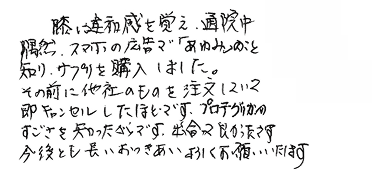 膝に違和感を覚え、通院中
偶然、スマホの広告で「あゆみのゆと
知り、サプリを購入しました。
その前に他社のものを注文していて
即キャンセルしたほどです。プロテグリカンの
すごさを知ったからです。出合って良かったです
今後とも長いおつきあいよろしくお願いいたします